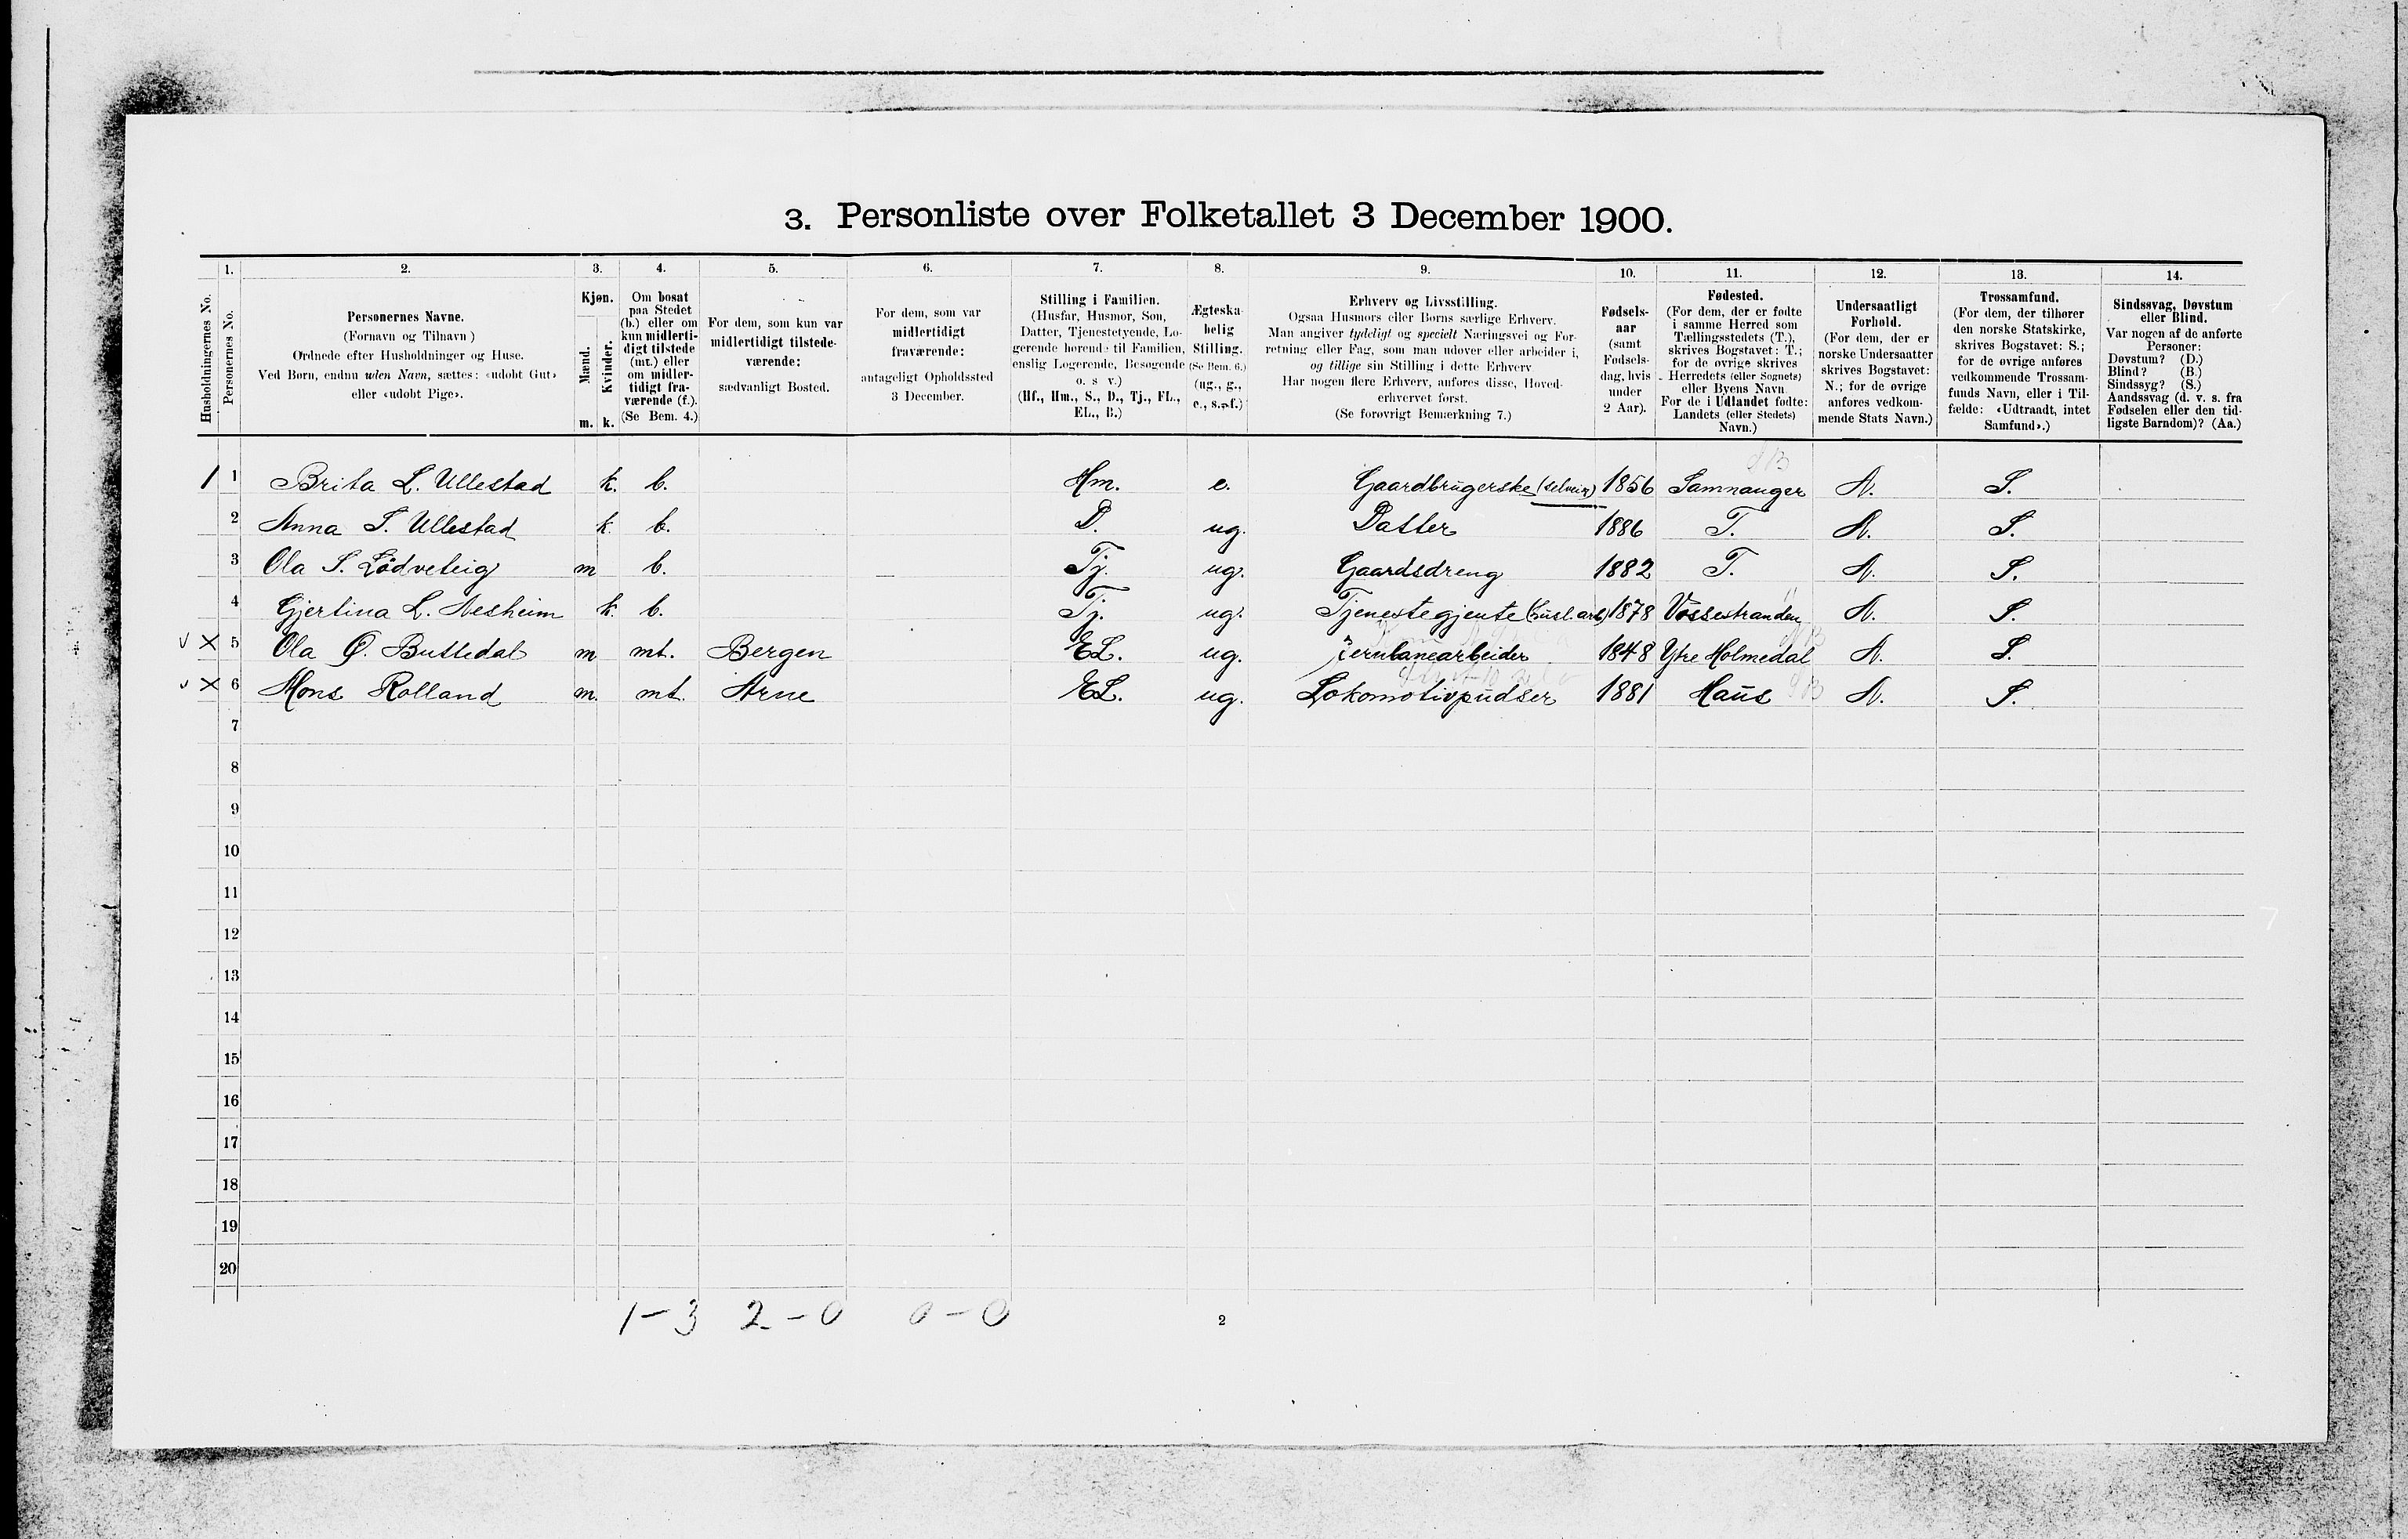 3. Personliste over Folketallet 3 December 1900.
1. 2. 3. 4. 5. 6. 7. 8. 9. 10. 11. 12. 13. 14.
Husholdningernes No.
Personernes No.
Personernes Navne.
(Fornavn og Tilnavn)
Ordnede efter Husholdninger og Huse.
Ved Børn, endnu uden Navn, sættes: «udøbt Gut»
eller «udøbt Pige».
Kjøn.
Mænd.
Kvinder.
m. k.
Om bosat
paa Stedet
(b.) eller om
kun midlerti-
digt tilstede
(mt.) eller
om midler-
tidigt fra-
værende (f.).
(Se Bem. 4.)
For dem, som kun var
midlertidigt tilstede-
værende:
sædvanligt Bosted.
For dem, som var
midlertidigt
fraværende:
antageligt Opholdssted
3 December.
Stilling i Familien.
(Husfar, Husmor, Søn,
Datter, Tjenestetyende, Lo-
gerende hørende til Familien,
enslig Logerende, Besøgende
o. s v.)
(Hf., Hm., S., D., Tj., FL.,
EL., B.)
Ægteska-
belig
Stilling.
(Se Bem. 6.)
(ug., g.,
e., s., f.)
Erhverv og Livsstilling.
Ogsaa Husmors eller Børns særlige Erhverv.
Man angiver tydeligt og specielt Næringsvei og For-
retning eller Fag, som man udøver eller arbeider i,
og tillige sin Stilling i dette Erhverv
Har nogen flere Erhverv, anføres disse, Hoved-
erhvervet først.
(Se forøvrigt Bemærkning 7.)
Fødsels-
aar
(samt
Fødsels-
dag, hvis
under
2 Aar).
Fødested.
(For dem, der er fødte
i samme Herred som
Tællingsstedets (T.),
skrives Bogstavet: T.;
for de øvrige skrives
Herredets (eller Sognets)
eller Byens Navn
For de i Udlandet fødte:
Landets (eller Stedets)
Navn.)
Undersaatligt
Forhold.
(For dem, der er
norske Undersaatter
skrives Bogstavet:
N.; for de øvrige
anføres vedkom-
mende Stats Navn.)
Trossamfund.
(For dem, der tilhører
den norske Statskirke,
skrives Bogstavet: S.;
for de øvrige anføres
vedkommende Trossam-
funds Navn, eller i Til-
fælde: «Udtraadt, intet
Samfund».)
Sindssvag, Døvstum
eller Blind.
Var nogen af de anførte
Personer:
Døvstum? (D.)
Blind? (B.)
Sindssyg? (S.)
Aandssvag (d. v. s. fra
Fødselen eller den tid-
ligste Barndom)? (Aa.)
1 1 Brita L. Ullestad k. b. Hm. e. Gaardbrugerske (selveier) 1856 Samnanger N. S.
2 Anna S. Ullestad k. b. D. ug. Datter 1886 T. N. S.
3 Ola S. Lødveteig m b. Tj. ug. Gaardsdreng 1882 T. N. S.
4 Gjertina L. Nesheim k. b. Tj. ug. Tjenestegjente (husl. arb) 1878 Vossestranden N. S.
v × 5 Ola Ø. Buttedal m mt. Bergen EL. ug. Jernbanearbeider 1848 Ytre Holmedal N. S.
v × 6 Mons Rolland m. mt. Arne EL. ug. Lokomotivpudser 1881 Haus N. S.
7
8
9
10
11
12
13
14
15
16
17
18
19
20
1-3 2-0 0-0
2